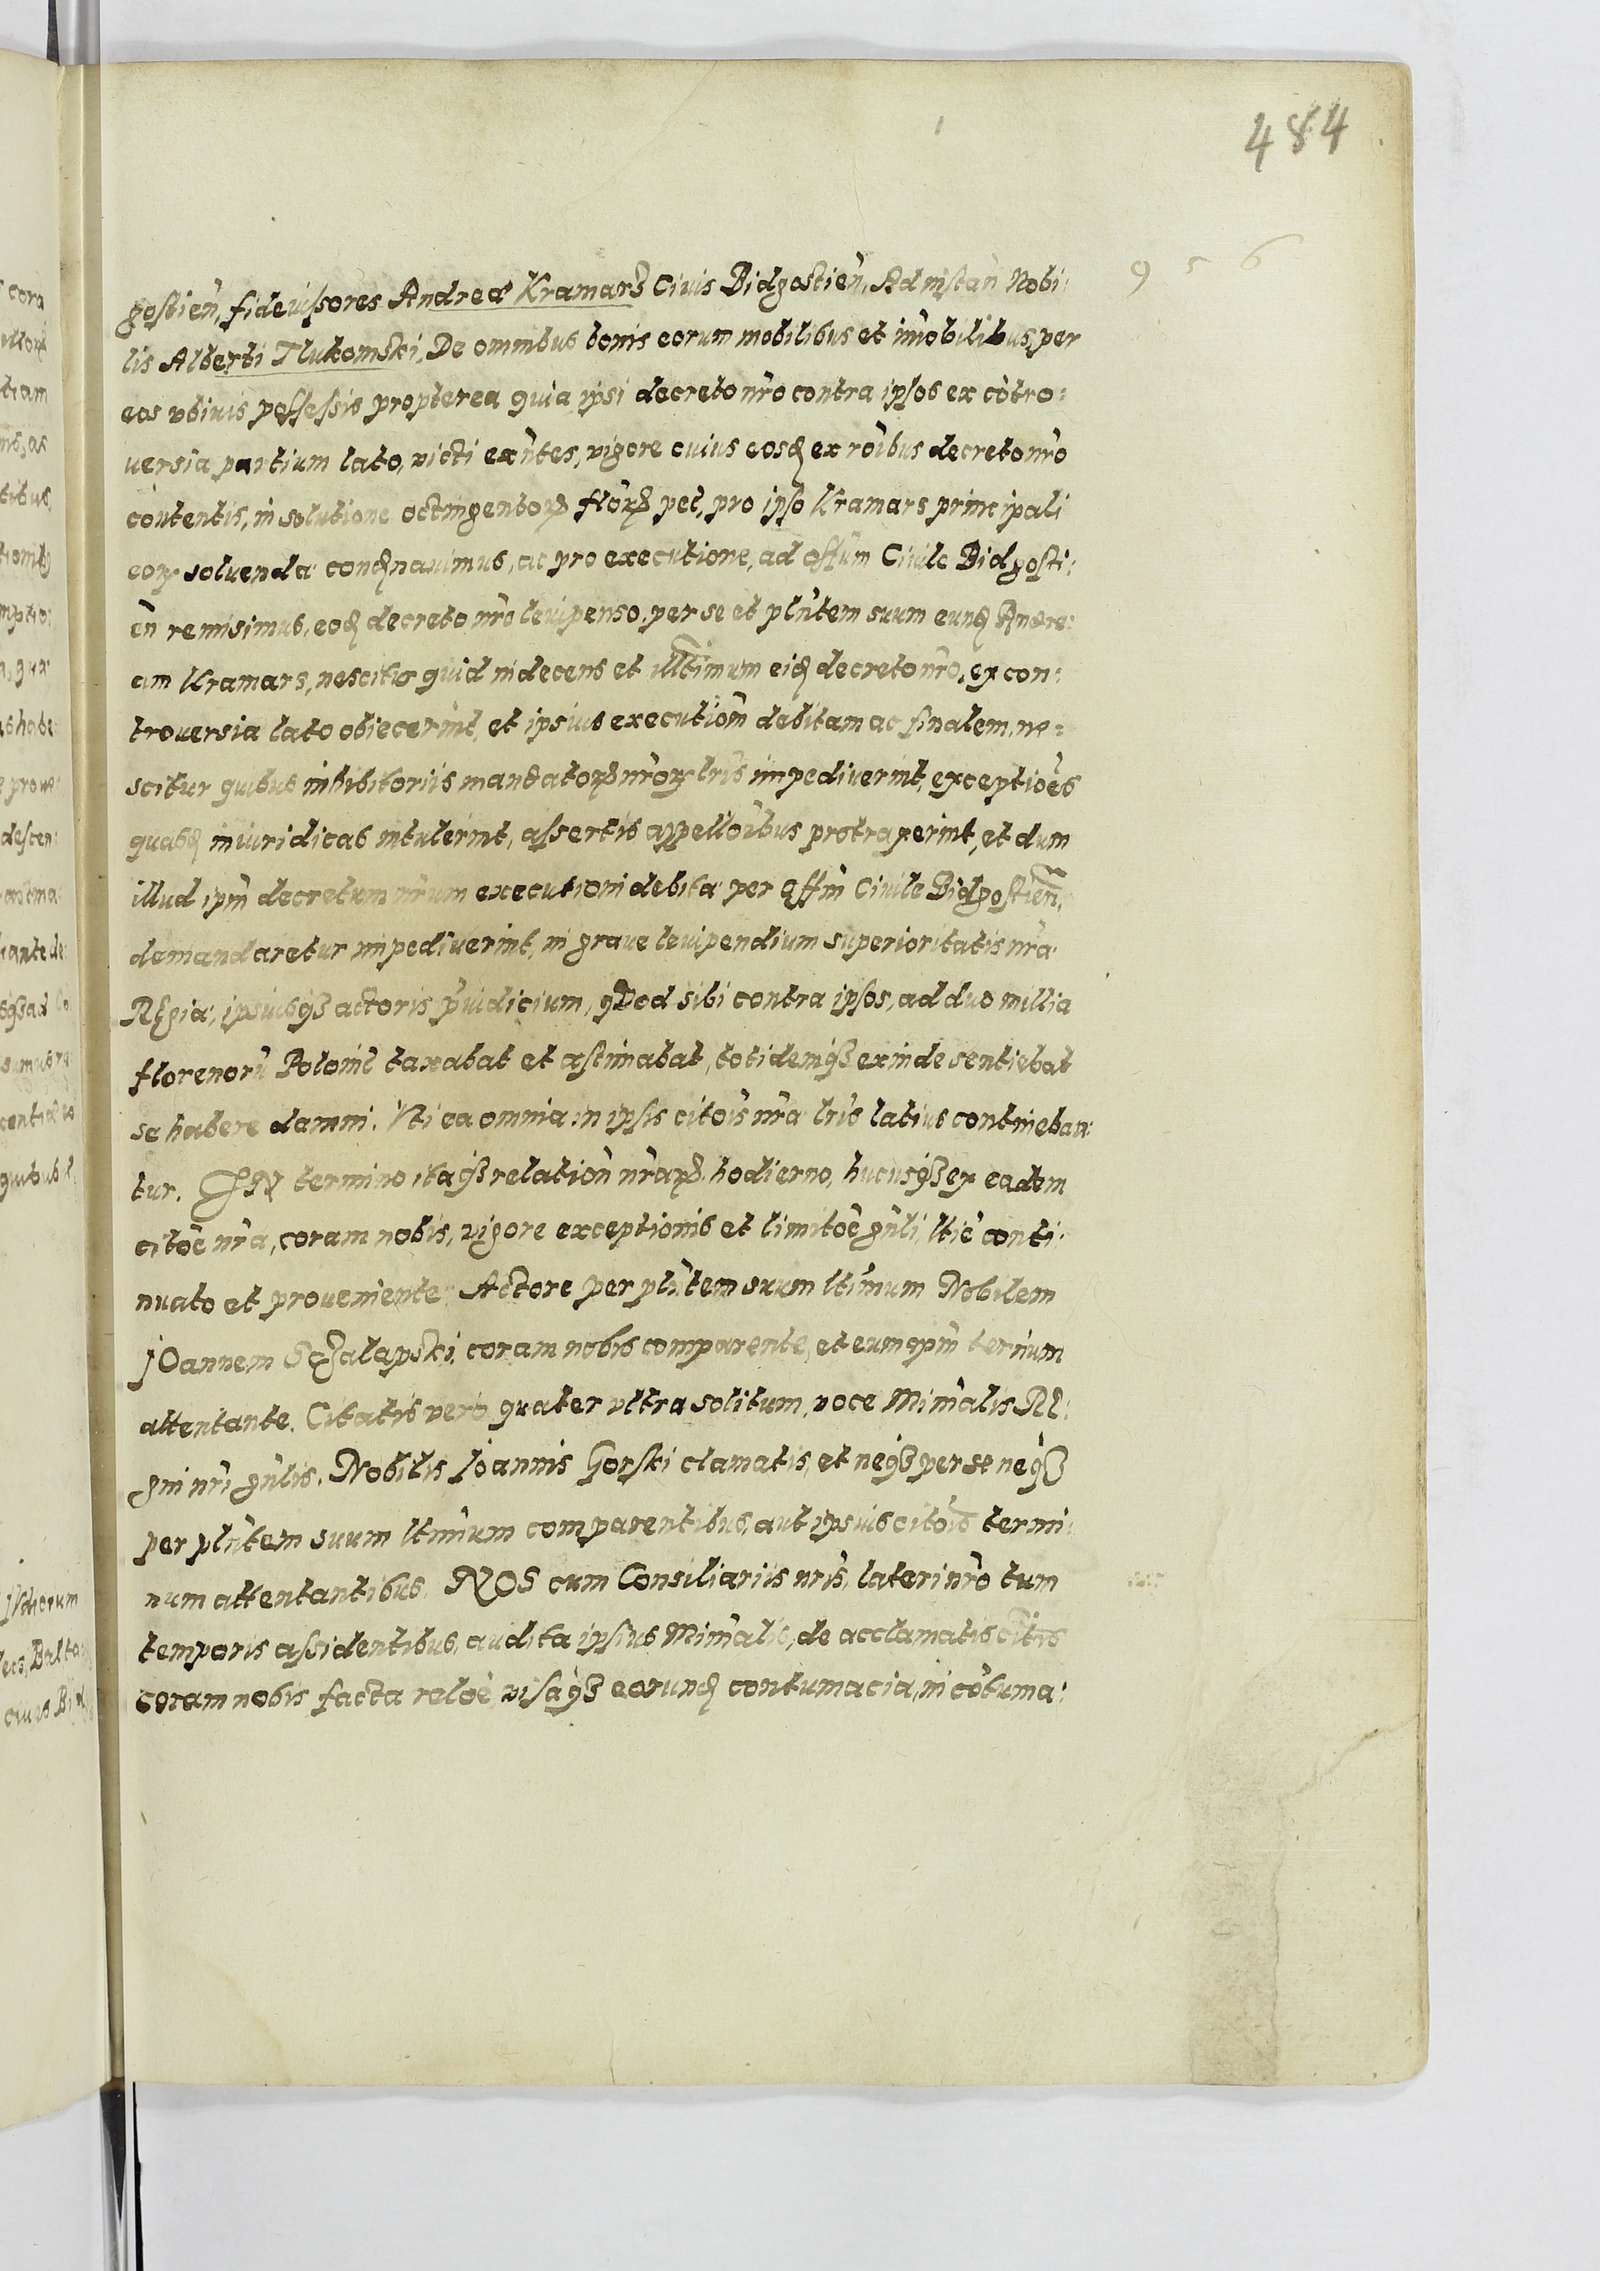 484
956
gostien̄, fideiussores Andreæ Kramarz Civis Bidgostien̄, Ad instan̄ Nobi:
lis Alberti Tlukomski, De omnibus bonis eorum mobilibus et im̄obilibus, per
eos vbivis possessis propterea quia ipsi decreto nr̄o contra ipsos ex cōtro:
uersia partium lato, victi exn̄tes, vigore cuius eosꝗ ex rōibus decreto nr̄o
contentis, in solutione octingentoꝝ flōꝝ pec̄, pro ipso Kramars principali
eoꝝ soluenda condꝗnauimus, ac pro executione, ad off̄um Ciuile Bidgosti:
en̄ remisimus, eodꝗ decreto nr̄o leuipenso, per se et pln̄tem suum eundꝗ Andre:
am Kramars, nescitur quid indecens et illtimum eidꝗ decreto nr̄o, ex con:
trouersia lato obiecerint, et ipsius execution̄ debitam ac finalem, ne:
scitur quibus inhibitoriis mandatoꝝ nr̄oꝝ lr̄is impediuerint, exceptiōes
quasdꝗ iniuridicas intulerint, assertis appellōibus protraxerint, et dum
illud ipm̄ decretum nr̄um executioni debitæ per Off̄m Ciuile Bidgostien̄,
demandaretur impediuerint, in graue leuipendium superioritatis nr̄æ
Regiæ, ipsiusqꝫ actoris p̄iudicium, quod sibi contra ipsos, ad duo millia
florenorū Polonic̄ taxabat et æstimabat, totidemqꝫ exinde sentiebat
se habere damni. Vti ea omnia in ipsis citōis nr̄æ lr̄is latius contineban:
tur. IN termino itaqꝫ relation̄ nr̄aꝝ hodierno, hucusqꝫ ex eadem
citōe nr̄a, coram nobis, vigore exceptionis et limitōe gn̄li, ltīe conti:
nuato et proueniente. Actore per pln̄tem suum ltimum Nobilem
JOannem Szalapski, coram nobis comparente, et eum ipm̄ ter̄num
attentante. Citatis vero quater vltra solitum, voce Min̄alis Re:
gni nr̄i gn̄lis. Nobilis Joannis Gorski clamatis, et neqꝫ per se neqꝫ
per pln̄tem suum ltimum comparentibus, aut ipsius citōis termi:
num attentantibus. NOS cum Consiliariis nr̄is, lateri nr̄o tum
temporis assidentibus, audita ipsius Min̄alis, de acclamatis citis
coram nobis facta relōe, visaqꝫ eorundꝗ contumacia, in cōtuma: